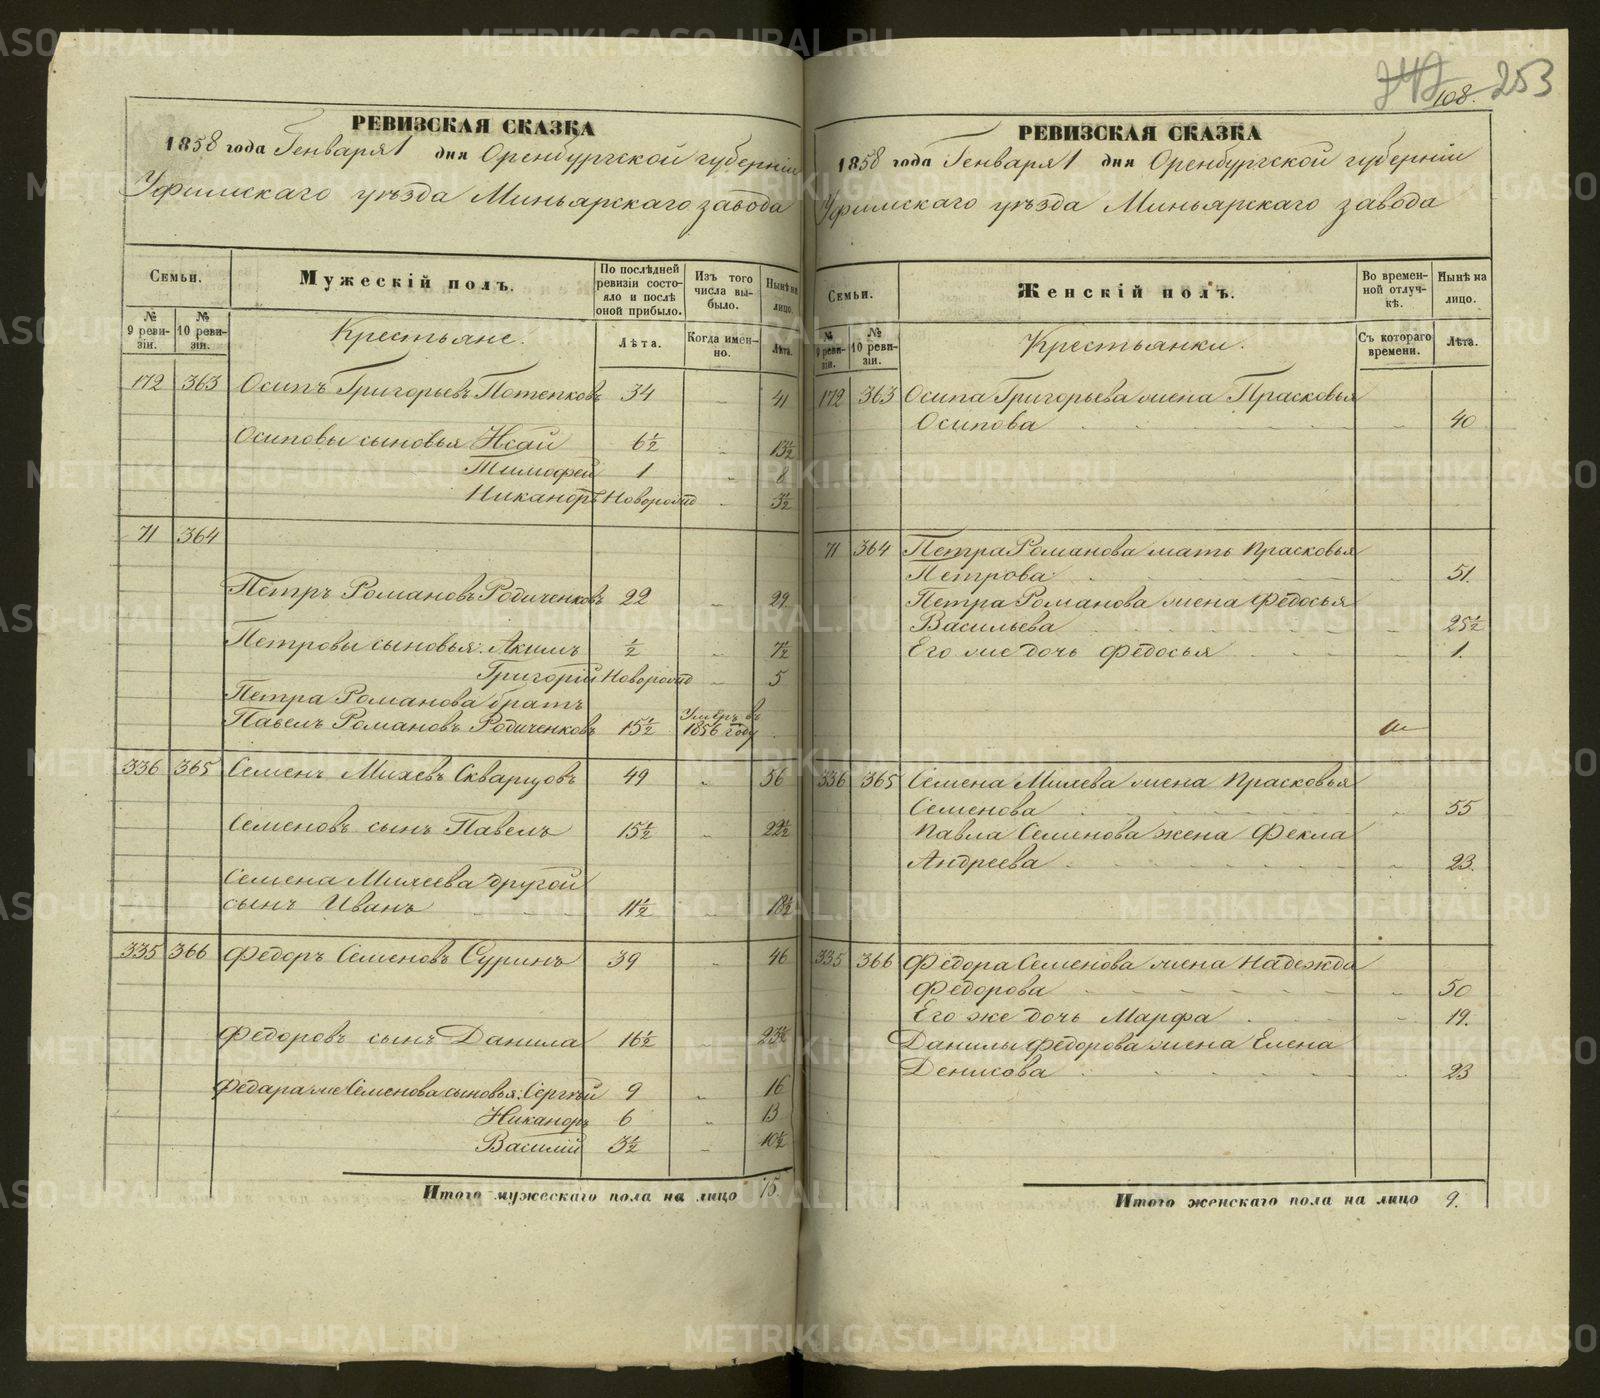 253
108.
РЕВИЗСКАЯ СКАЗКА
1858 года Генваря 1 дня Оренбургской губерніи
Уфимскаго уѣзда Миньярскаго завода
Семьи.
Мужескій полъ.
По послѣдней ревизіи состояло и послѣ оной прибыло.
Изъ того числа выбыло.
Нынѣ на лицо.
№ 9 ревизіи.
№ 10 ревизіи.
Крестьяне.
Лѣта.
Когда именно.
Лѣта.
172 363 Осипъ Григорьевъ Потепковъ 34 „ 41
Осиповы сыновья Исай 6½ „ 13½
Тимофей 1 „ 8
Никаноръ Новорожд „ 3½
71 364
Петръ Романовъ Родиченковъ 22 „ 29
Петровы сыновья: Акимъ ½ „ 7½
Григорій Новорожд „ 5
Петра Романова братъ
Павелъ Романовъ Родиченковъ 15½ Умеръ въ 1856 году
336 365 Семенъ Михеевъ Скварцовъ 49 „ 56
Семеновъ сынъ Павелъ 15½ „ 22½
Семена Михеева другой
сынъ Иванъ 11½ „ 18½
335 366 Федоръ Семеновъ Суринъ 39 „ 46
Федоровъ сынъ Данила 16½ „ 23½
Федара же Семенова сыновья: Сергѣй 9 „ 16
Никаноръ 6 „ 13
Василій 3½ „ 10½
Итого мужескаго пола на лицо 15.
РЕВИЗСКАЯ СКАЗКА
1858 года Генваря 1 дня Оренбургской губерніи
Уфимскаго уѣзда Миньярскаго завода
Семьи.
Женскій полъ.
Во временной отлучкѣ.
Нынѣ на лицо.
№ 9 ревизіи.
№ 10 ревизіи.
Крестьянки.
Съ котораго времени.
Лѣта.
172 363 Осипа Григорьева жена Прасковья
Осипова „ 40
71 364 Петра Романова мать Прасковья
Петрова „ 51.
Петра Романова жена Федосья
Васильева „ 25½
Его же дочь Федосья „ 1.
336 365 Семена Михеева жена Прасковья
Семенова „ 55
Павла Семенова жена Фекла
Андреева „ 23.
335 366 Федора Семенова жена Надежда
Федорова „ 50
Его же дочь Марфа „ 19.
Данилы Федорова жена Елена
Денисова „ 23
Итого женскаго пола на лицо 9.
METRIKI.GASO-URAL.RU